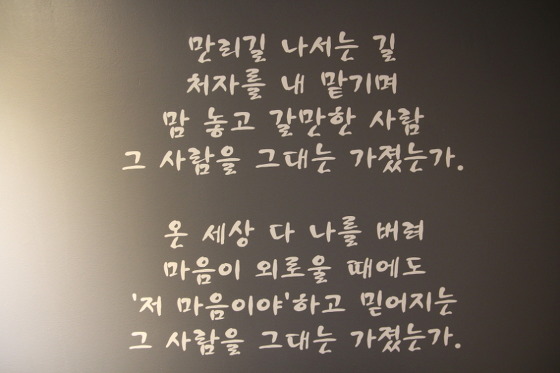 만리길 나서는 길
처자를 내 맡기며
맘 놓고 갈만한 사람
그 사람을 그대는 가졌는가.
온 세상 다 나를 버려
마음이 외로울 때에도
'저 마음이야'하고 믿어지는
그 사람을 그대는 가졌는가.